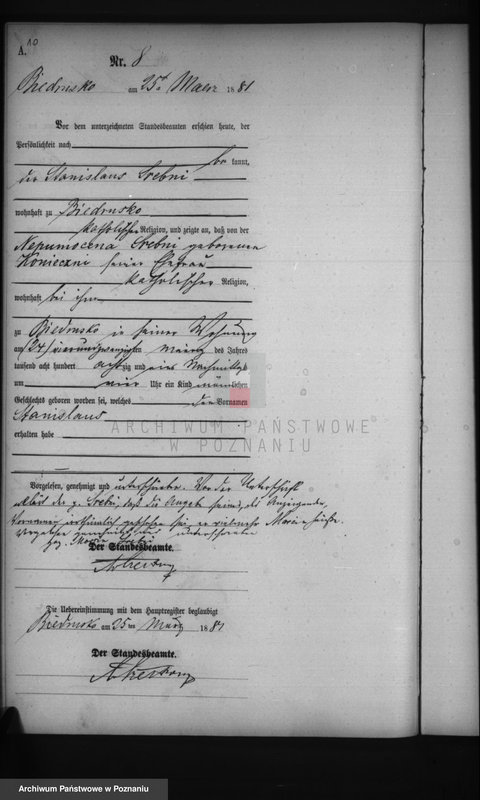 A. 10
Nr. 8
Biedrusko am 25ten Maerz 1881
Vor dem unterzeichneten Standesbeamten erschien heute, der
Persönlichkeit nach
be kannt,
der Stanislaus Srebni
wohnhaft zu Biedrusko
katholischer Religion, und zeigte an, daß von der
Nepumocena Srebni geborenen
Konieczni seiner Ehefrau
katholischer Religion,
wohnhaft bei ihm
zu Biedrusko in seiner Wohnung
am (24) vierundzwanzigsten Maerz des Jahres
tausend acht hundert achtzig und eins Nachmittags
um vier Uhr ein Kind männlichen
Geschlechts geboren worden sei, welches den Vornamen
Stanislaus
erhalten habe
Vorgelesen, genehmigt und unterschrieben. Vor der Unterschrift
der p. Srebni, daß die Angabe seines, des Anzeigenden,
Vornamens irrthümlich geschehen sei, er vielmehr heiße.
Vorgelesen genehmigt und unterschrieben
gez. Srebni
Der Standesbeamte.
Die Uebereinstimmung mit dem Hauptregister beglaubigt
Biedrusko am 25ten März 1881
Der Standesbeamte.
ARCHIWUM PAŃSTWOWE
W POZNANIU
Archiwum Państwowe w Poznaniu